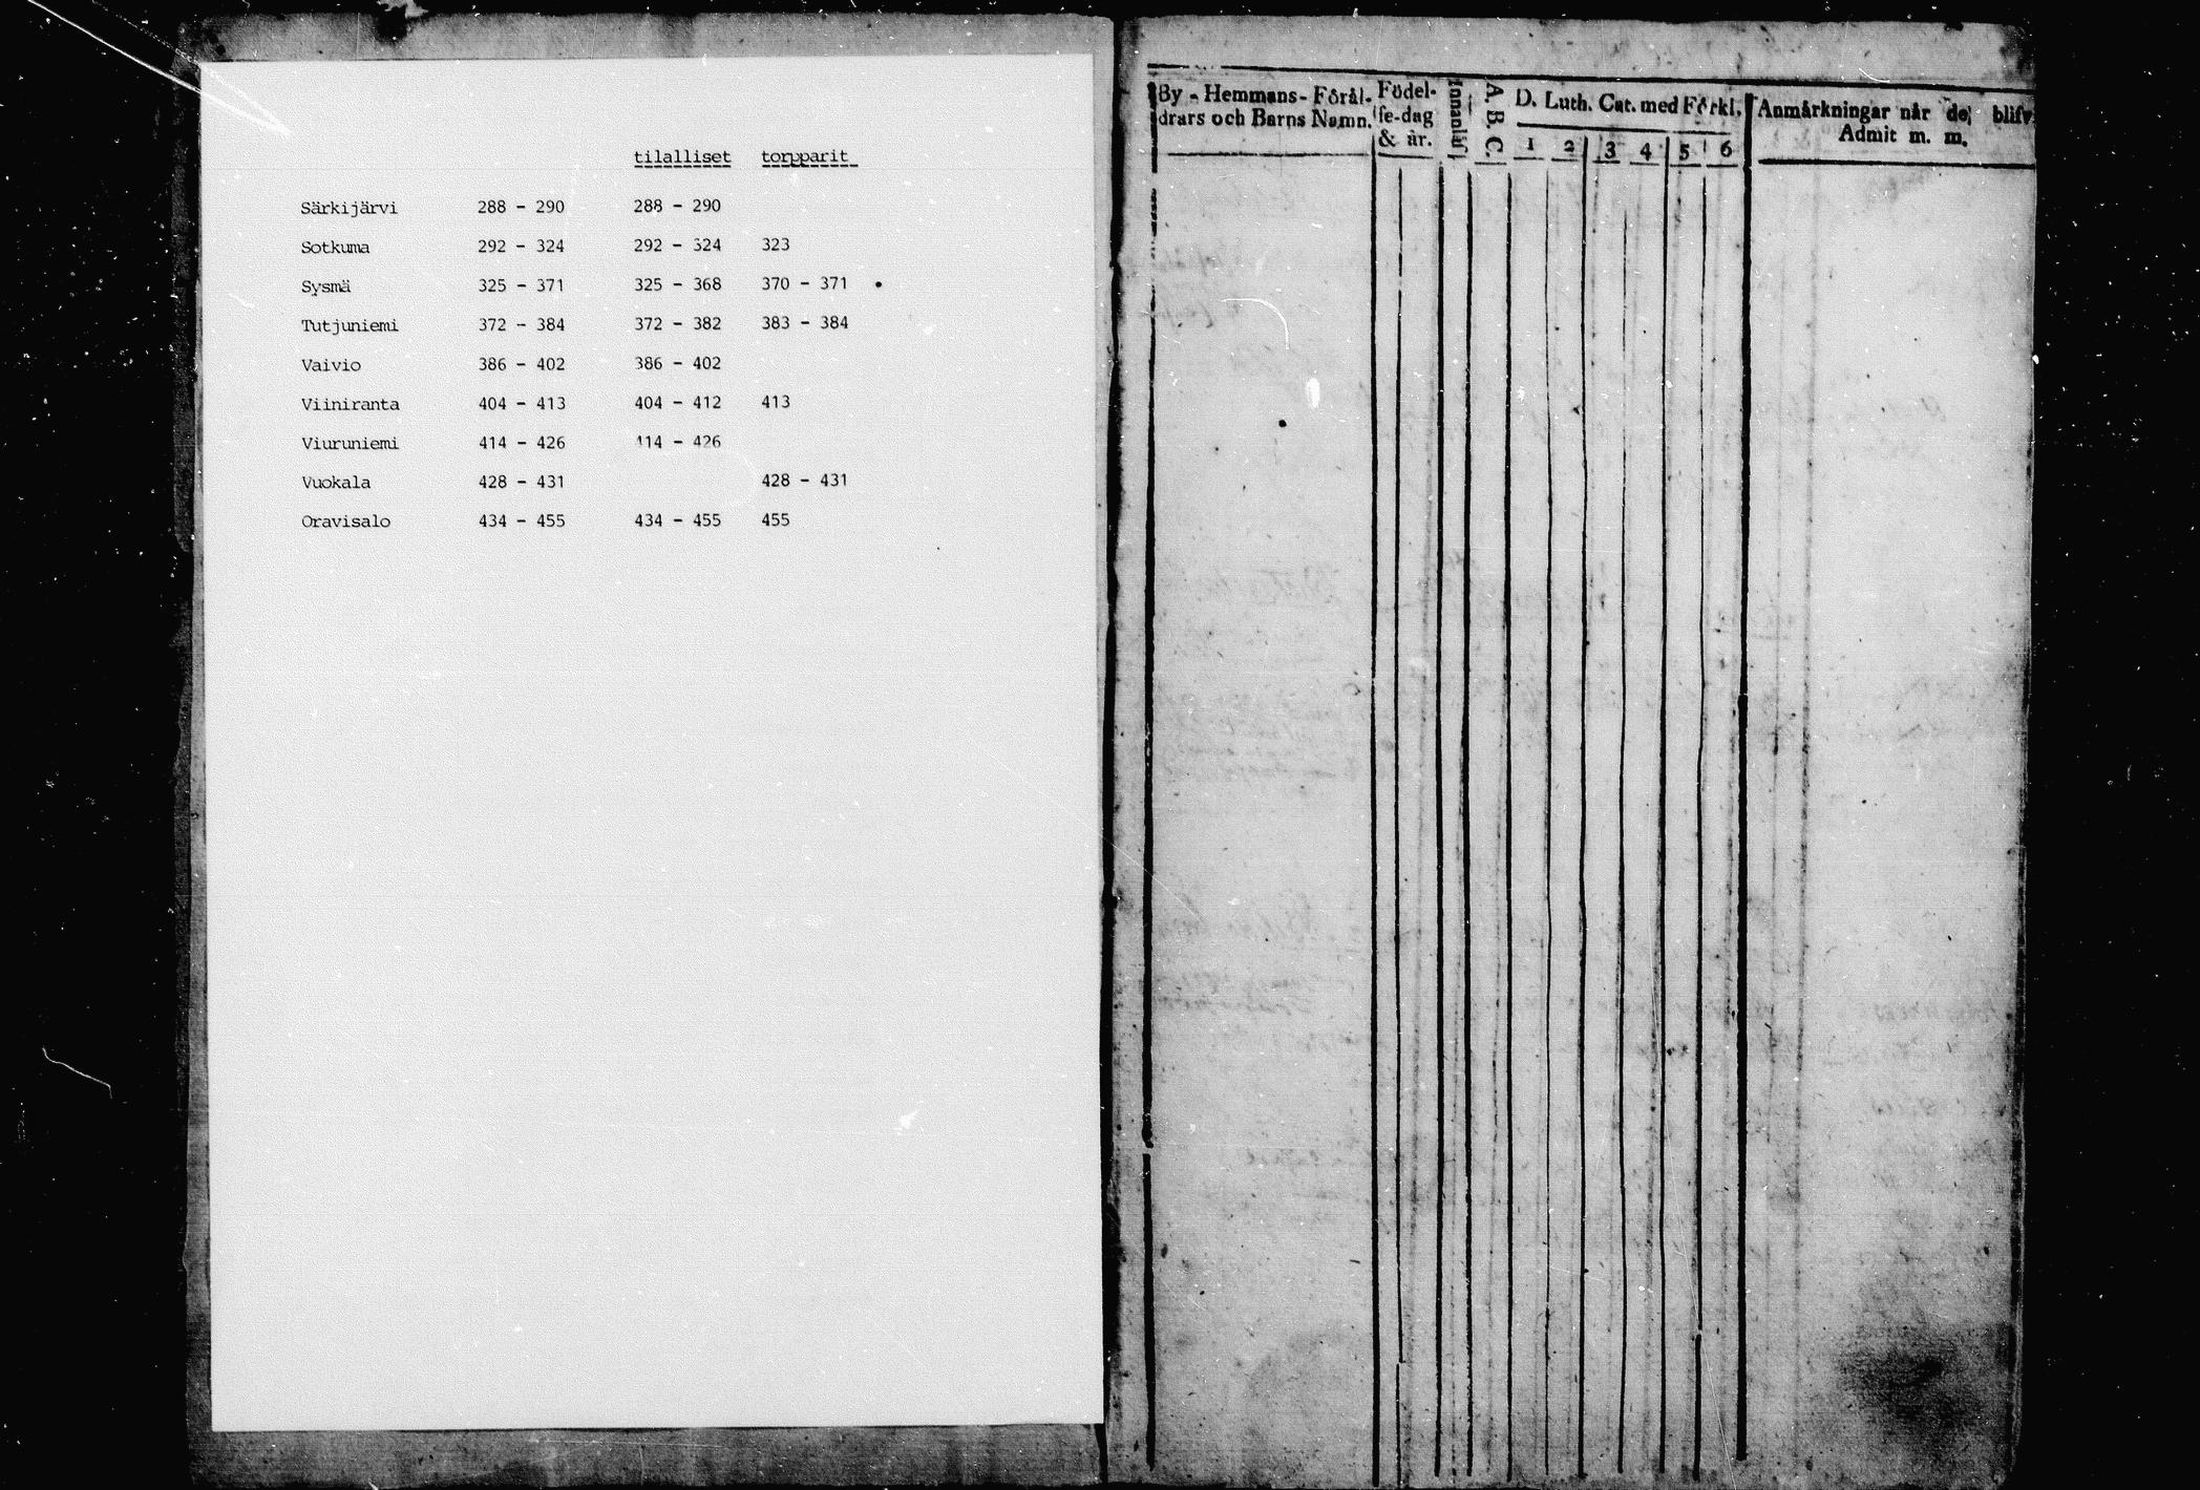 tilalliset torpparit
Särkijärvi 288 - 290 288 - 290
Sotkuma 292 - 324 292 - 324 323
Sysmä 325 - 371 325 - 368 370 - 371
Tutjuniemi 372 - 384 372 - 382 383 - 384
Vaivio 386 - 402 386 - 402
Viiniranta 404 - 413 404 - 412 413
Viuruniemi 414 - 426 414 - 426
Vuokala 428 - 431 428 - 431
Oravisalo 434 - 455 434 - 455 455
By - Hemmans- Föräl-
drars och Barns Namn.
Födel-
se-dag
& år.
A. B. C.
D. Luth. Cat. med Förkl.
1 2 3 4 5 6
Anmärkningar når de blifv
Admit m. m.